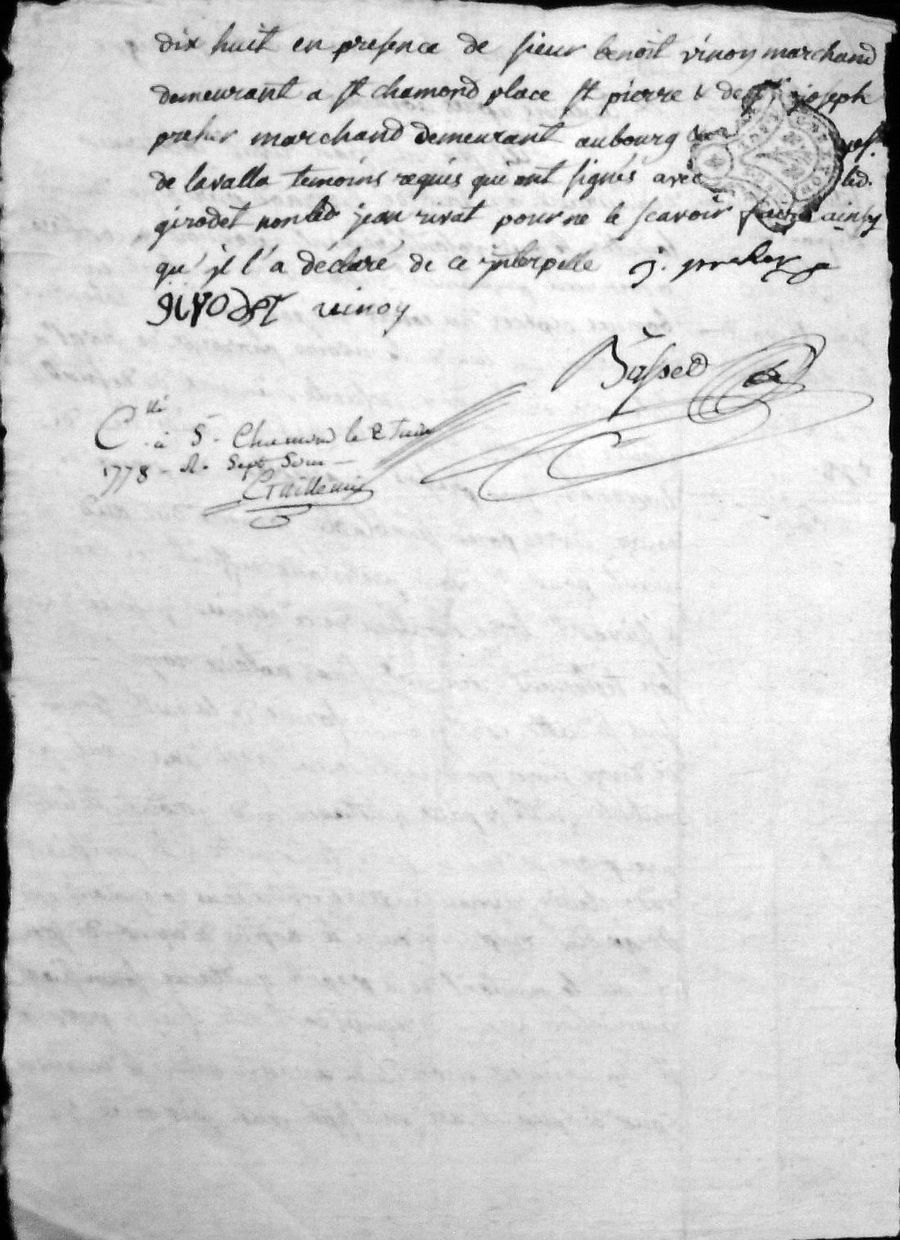 dix huit en presence de sieur benoit vinoy marchand
demeurant a st chamond place st pierre & de joseph
preher marchand demeurant au bourg
de lavalla temoins requis qui ont signés avec led.
girodet non led jean rivat pour ne le scavoir faire ainsy
qu'jl l'a déclaré de ce jnterpellé j. preher
girodet vinoy
C.llé à St Chamond le 2 Juin
1778 R. Sept Sous